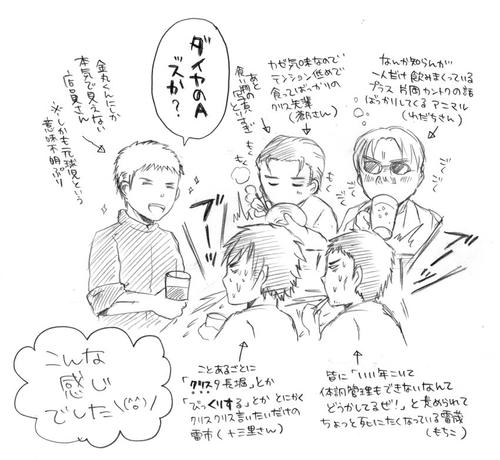 なんか知らんが
一人だけ飲みまくっている
プラス 片岡カントクの話
ばっかりしてる アニマル
(わだちさん)
カゼ気味なので
テンション低めで
食ってばっかりの
クリス先輩
(蒼さん)
あと
食い物の
ダイヤのA
ズか?
金丸くんにしか
本気で見えない
店員さん
※しかも元球児という
意味不明ぷり
もぐ
もぐ
ブーッ
ブーッ
こんな
感じ
でした\(^^)/
ことあるごとに
「クリスタ長堀」とか
「びっくりする」とか とにかく
クリスクリス言いたいだけの
雷市(十三里さん)
皆に「いい年こいて
体調管理もできないなんて
どうかしてるぜ!」と責められて
ちょっと死にたくなっている雷蔵
(もちこ)